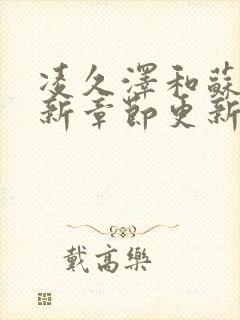 凌久澤和蘇
新章節更新
戴高樂